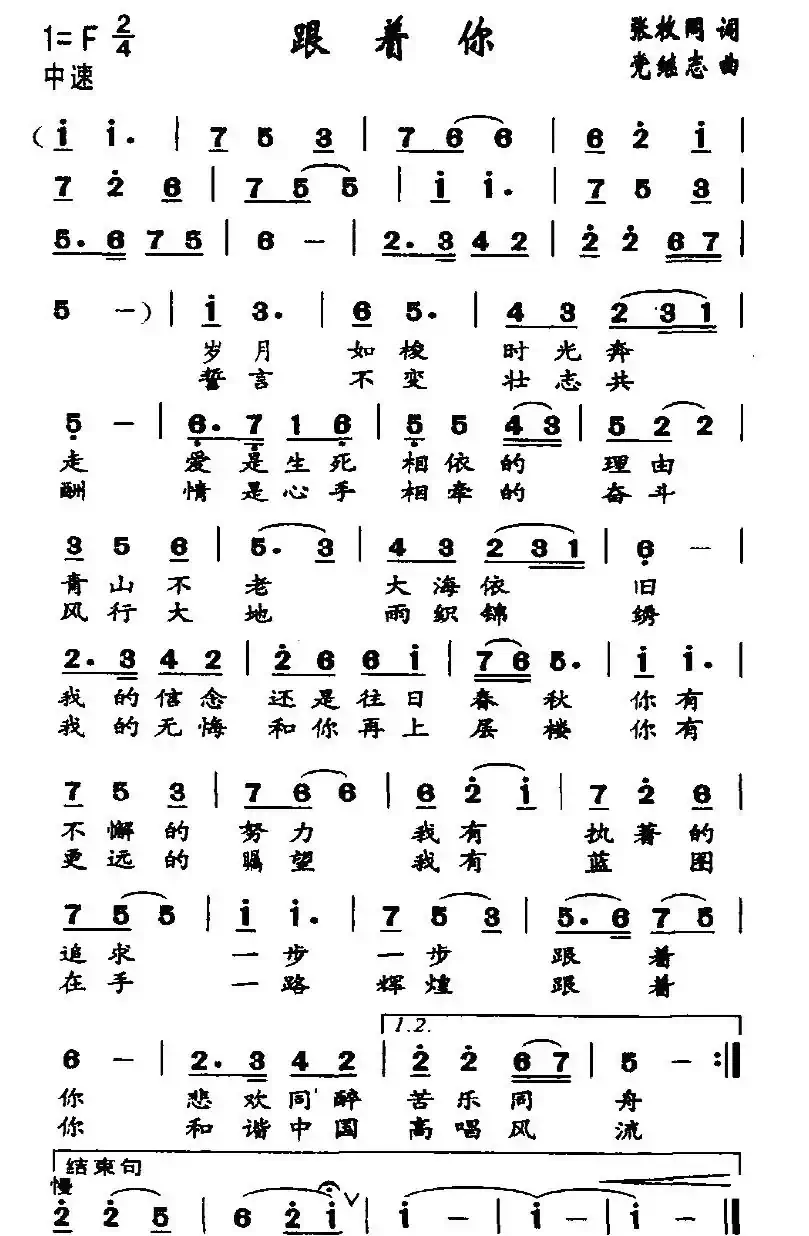 跟着你
1=F 2/4
中速
张牧网 词
党继志 曲
(i i. | 7 5 3 | 7 6 6 | 6 2 i |
7 2 6 | 7 5 5 | i i. | 7 5 3 |
5. 6 7 5 | 6 - | 2. 3 4 2 | 2 2 6 7 |
5 -) | i 3. | 6 5. | 4 3 2 3 1 |
岁月 如梭 时光奔
誓言 不变 壮志共
5 - | 6. 7 1 6 | 5 5 4 3 | 5 2 2 |
走 爱是生死 相依的 理由
酬 情是心手 相牵的 奋斗
3 5 6 | 5. 3 | 4 3 2 3 1 | 6 - |
青山不 老 大海依 旧
风行大 地 雨织锦 绣
2. 3 4 2 | 2 6 6 i | 7 6 5. | i i. |
我的信念 还是往日 春秋 你有
我的无悔 和你再上 层楼 你有
7 5 3 | 7 6 6 | 6 2 i | 7 2 6 |
不懈的 努力 我有 执著的
更远的 瞩望 我有 蓝图
7 5 5 | i i. | 7 5 3 | 5. 6 7 5 |
追求 一步 一步 跟着
在手 一路 辉煌 跟着
1.2.
6 - | 2. 3 4 2 | 2 2 6 7 | 5 - :||
你 悲欢同醉 苦乐同 舟
你 和谐中国 高唱风 流
结束句
慢
2 2 5 | 6 2 i ∨ | i - | i - | i - ||